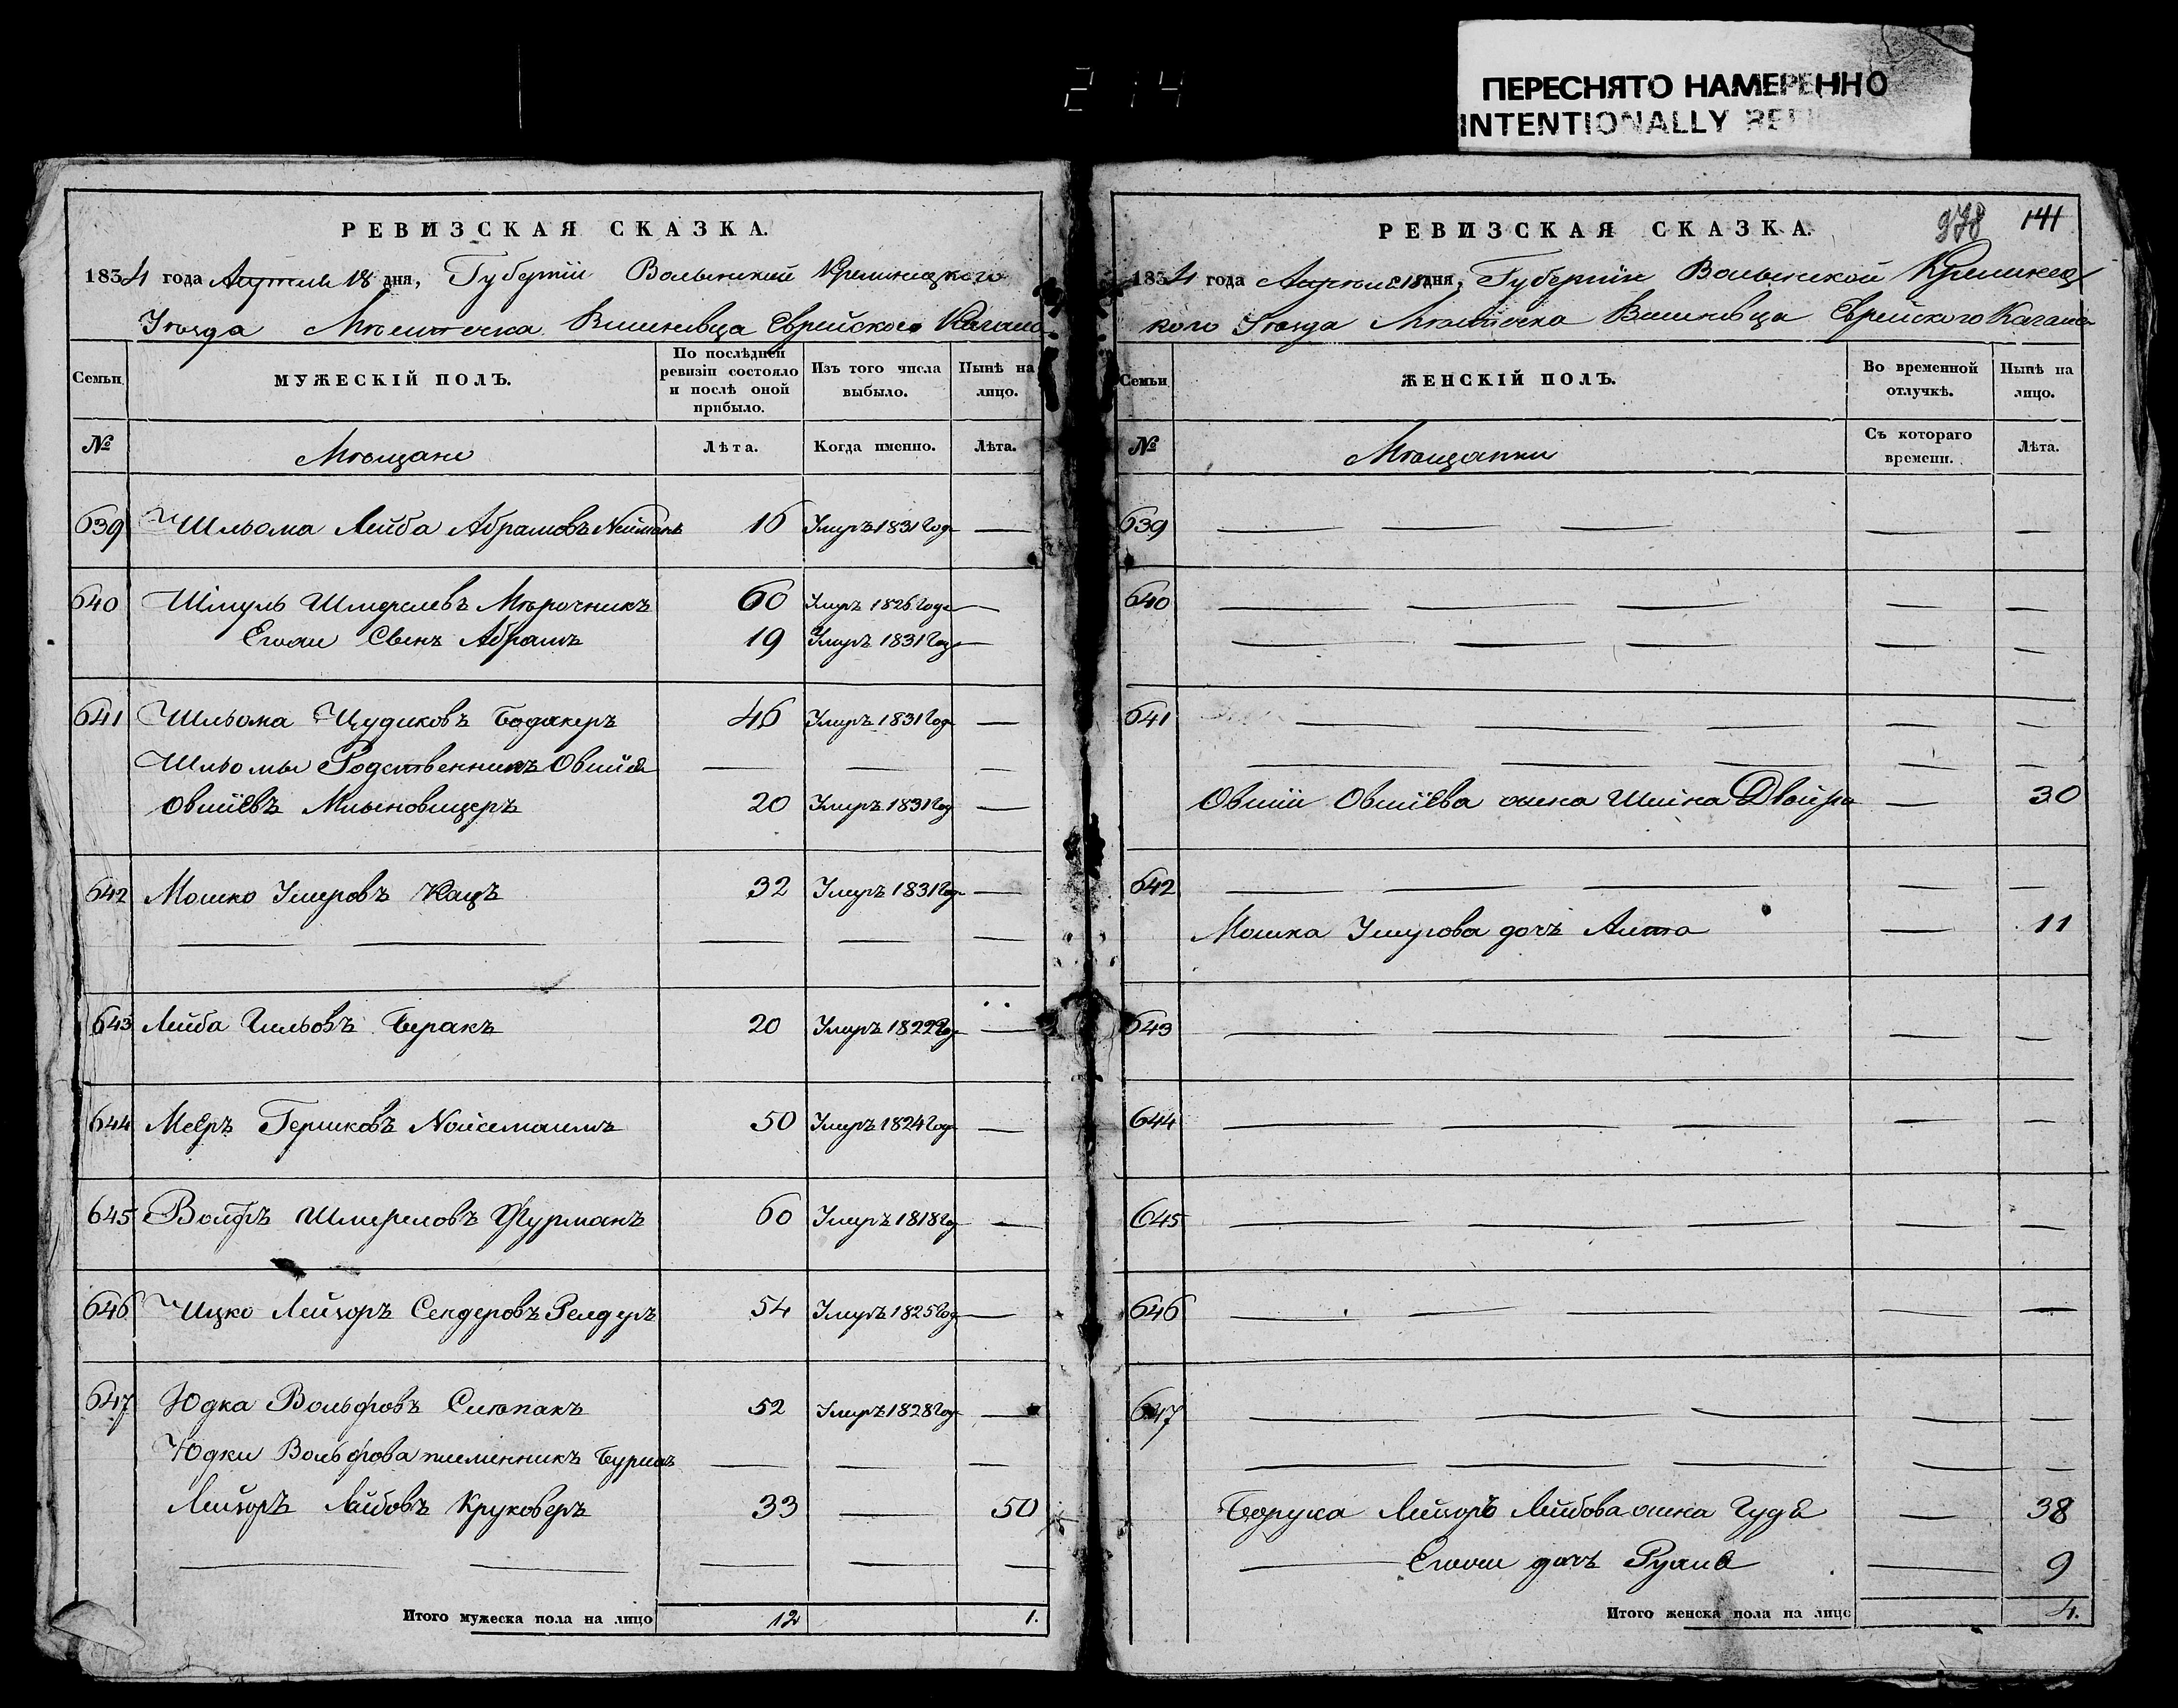 214
ПЕРЕСНЯТО НАМЕРЕННО
INTENTIONALLY
РЕВИЗСКАЯ СКАЗКА.
1834 года Апреля 18 дня, Губернiи Волынской Кременецкого
Уѣзда Мѣстечка Вишневца Еврейского Кагала
Семьи
МУЖЕСКIЙ ПОЛЪ.
По послѣдней ревизiи состояло и послѣ оной прибыло.
Изъ того числа выбыло.
Нынѣ на лицо.
№
Мѣщане
Лѣта.
Когда именно.
Лѣта.
639 Шльома Лейба Абрамовъ Нейманъ 16 Умеръ 1831 Года —
640 Шмуль Шмерелевъ Мѣрочникъ 60 Умеръ 1826 Года —
Егоже Сынъ Абрамъ 19 Умеръ 1831 Года —
641 Шльома Цудиковъ Бодакеръ 46 Умеръ 1831 Года —
Шльомы Родственникъ Овшiй — — —
Овшiевъ 20 Умеръ 1831 Год —
642 Мошко Умеровъ Кацъ 32 Умеръ 1831 Года —
— — — — —
643 Лейба Беракъ 20 Умеръ 1822 Год —
644 Мееръ Гершковъ 50 Умеръ 1824 Года —
645 Вольфъ Шмереловъ Фурманъ 60 Умеръ 1818 Год —
646 Ицко Лейзоръ Сендеровъ 54 Умеръ 1825 Год —
647 Юдка Вольфовъ Слѣпакъ 52 Умеръ 1828 Год —
Юдки Вольфова племенникъ — — —
Лейзоръ Лейбовъ Круковеръ 33 — 50
— — — — —
Итого мужеска пола на лицо 12 1.
978 141
РЕВИЗСКАЯ СКАЗКА.
1834 года Апреля 18 дня, Губернiи Волынской Кременец
кого Уѣзда Мѣстечка Вишневца Еврейского Кагала
Семьи
ЖЕНСКIЙ ПОЛЪ.
Во временной отлучкѣ.
Нынѣ на лицо.
№
Мѣщанки
Съ котораго времени.
Лѣта.
639 — — — — —
640 — — — — —
— — — — —
641 — — — — —
— — — — —
Овшiи Овшiева жена Шейна Двойра — 30
642 — — — — —
Мошка Умерова дочь — 11
643 — — — — —
644 — — — — —
645 — — — — —
646 — — — — —
647 — — — — —
— — — — —
Боруха Лейзоръ Лейбова жена — 38
— Егоже дочь — 9
Итого женска пола на лицо 4.